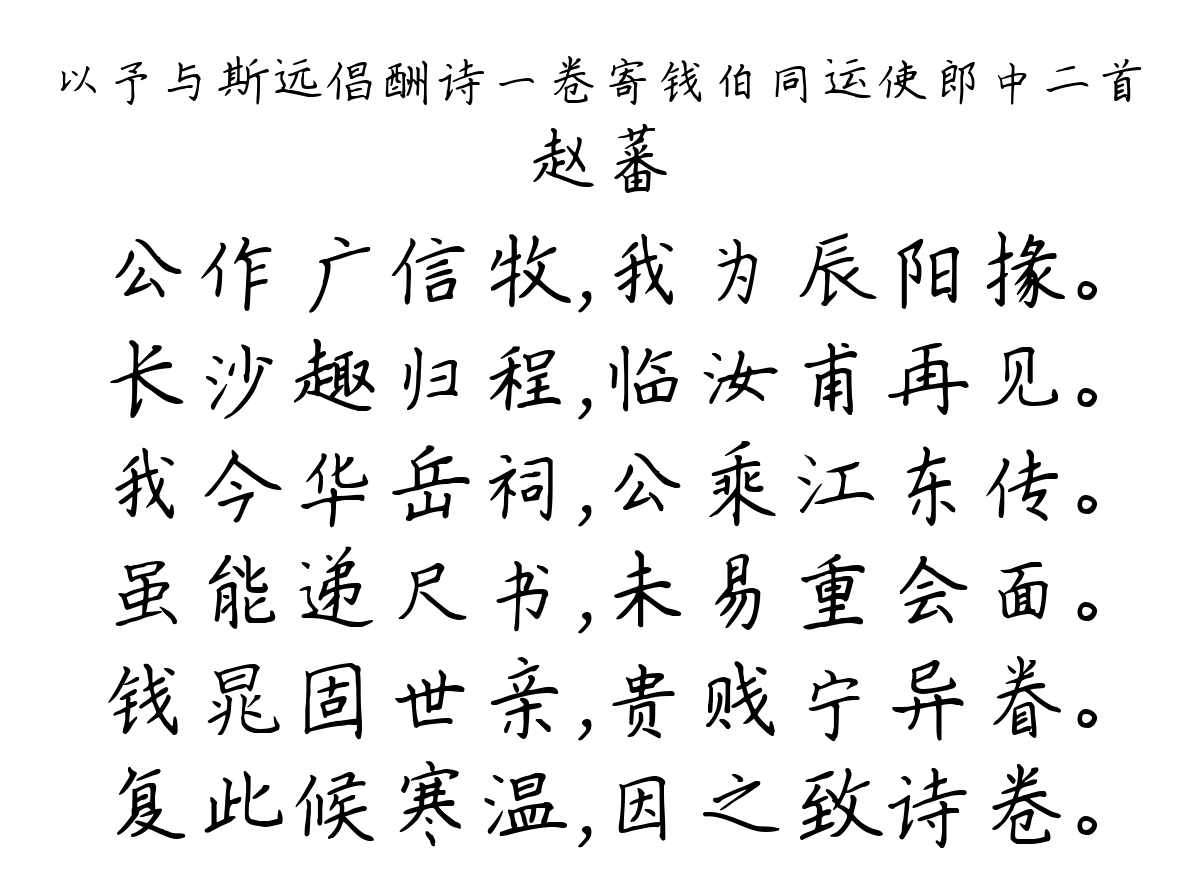 以予与斯远倡酬诗一卷寄钱伯同运使郎中二首
赵蕃
公作广信牧,我为辰阳掾。
长沙趣归程,临汝甫再见。
我今华岳祠,公乘江东传。
虽能递尺书,未易重会面。
钱晁固世亲,贵贱宁异眷。
复此候寒温,因之致诗卷。